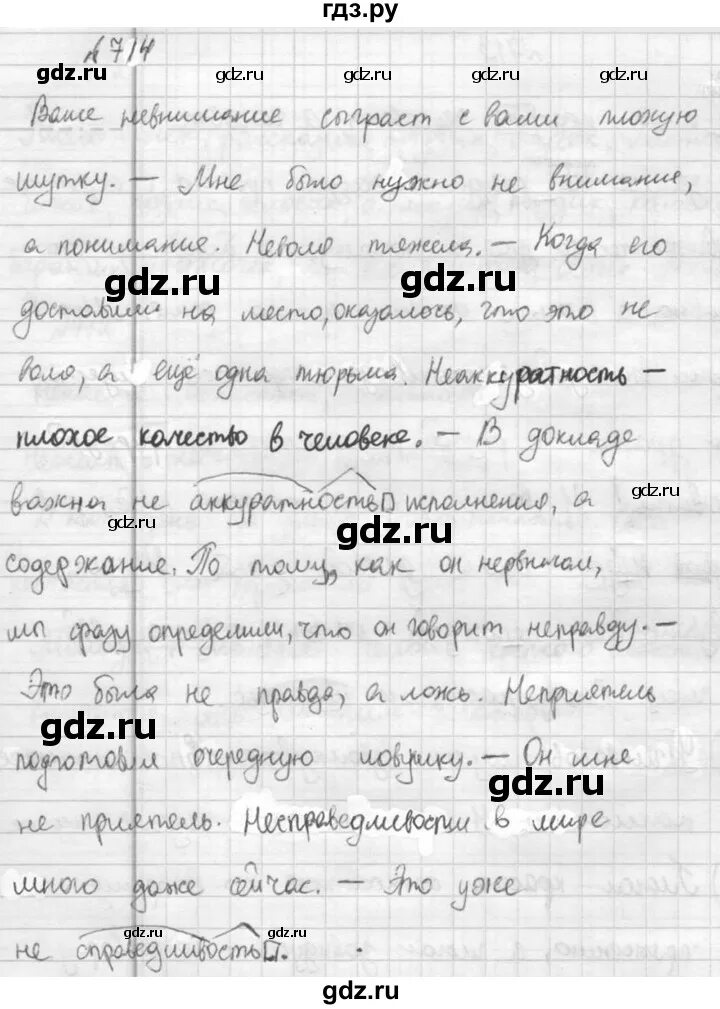 гдз.ру
№714
gdz.ru gdz.ru gdz.ru
Ваше невнимание сыграет с вами плохую
шутку. — Мне было нужно не внимание,
gdz.ru gdz.ru
а понимание. Неволя тяжела. — Когда его
gdz.ru gdz.ru
доставили на место, оказалось, что это не
воля, а ещё одна тюрьма. Неаккуратность —
gdz.ru gdz.ru
плохое качество в человеке. — В докладе
важна не аккуратность исполнения, а
gdz.ru gdz.ru
содержание. По тому, как он нервничал,
мы сразу определили, что он говорит неправду. —
gdz.ru gdz.ru
Это была не правда, а ложь. Неприятель
gdz.ru
подготовил очередную ловушку. — Он мне
gdz.ru
не приятель. Несправедливости в мире
gdz.ru gdz.ru
много даже сейчас. — Это уже
не справедливость.
gdz.ru gdz.ru
gdz.ru